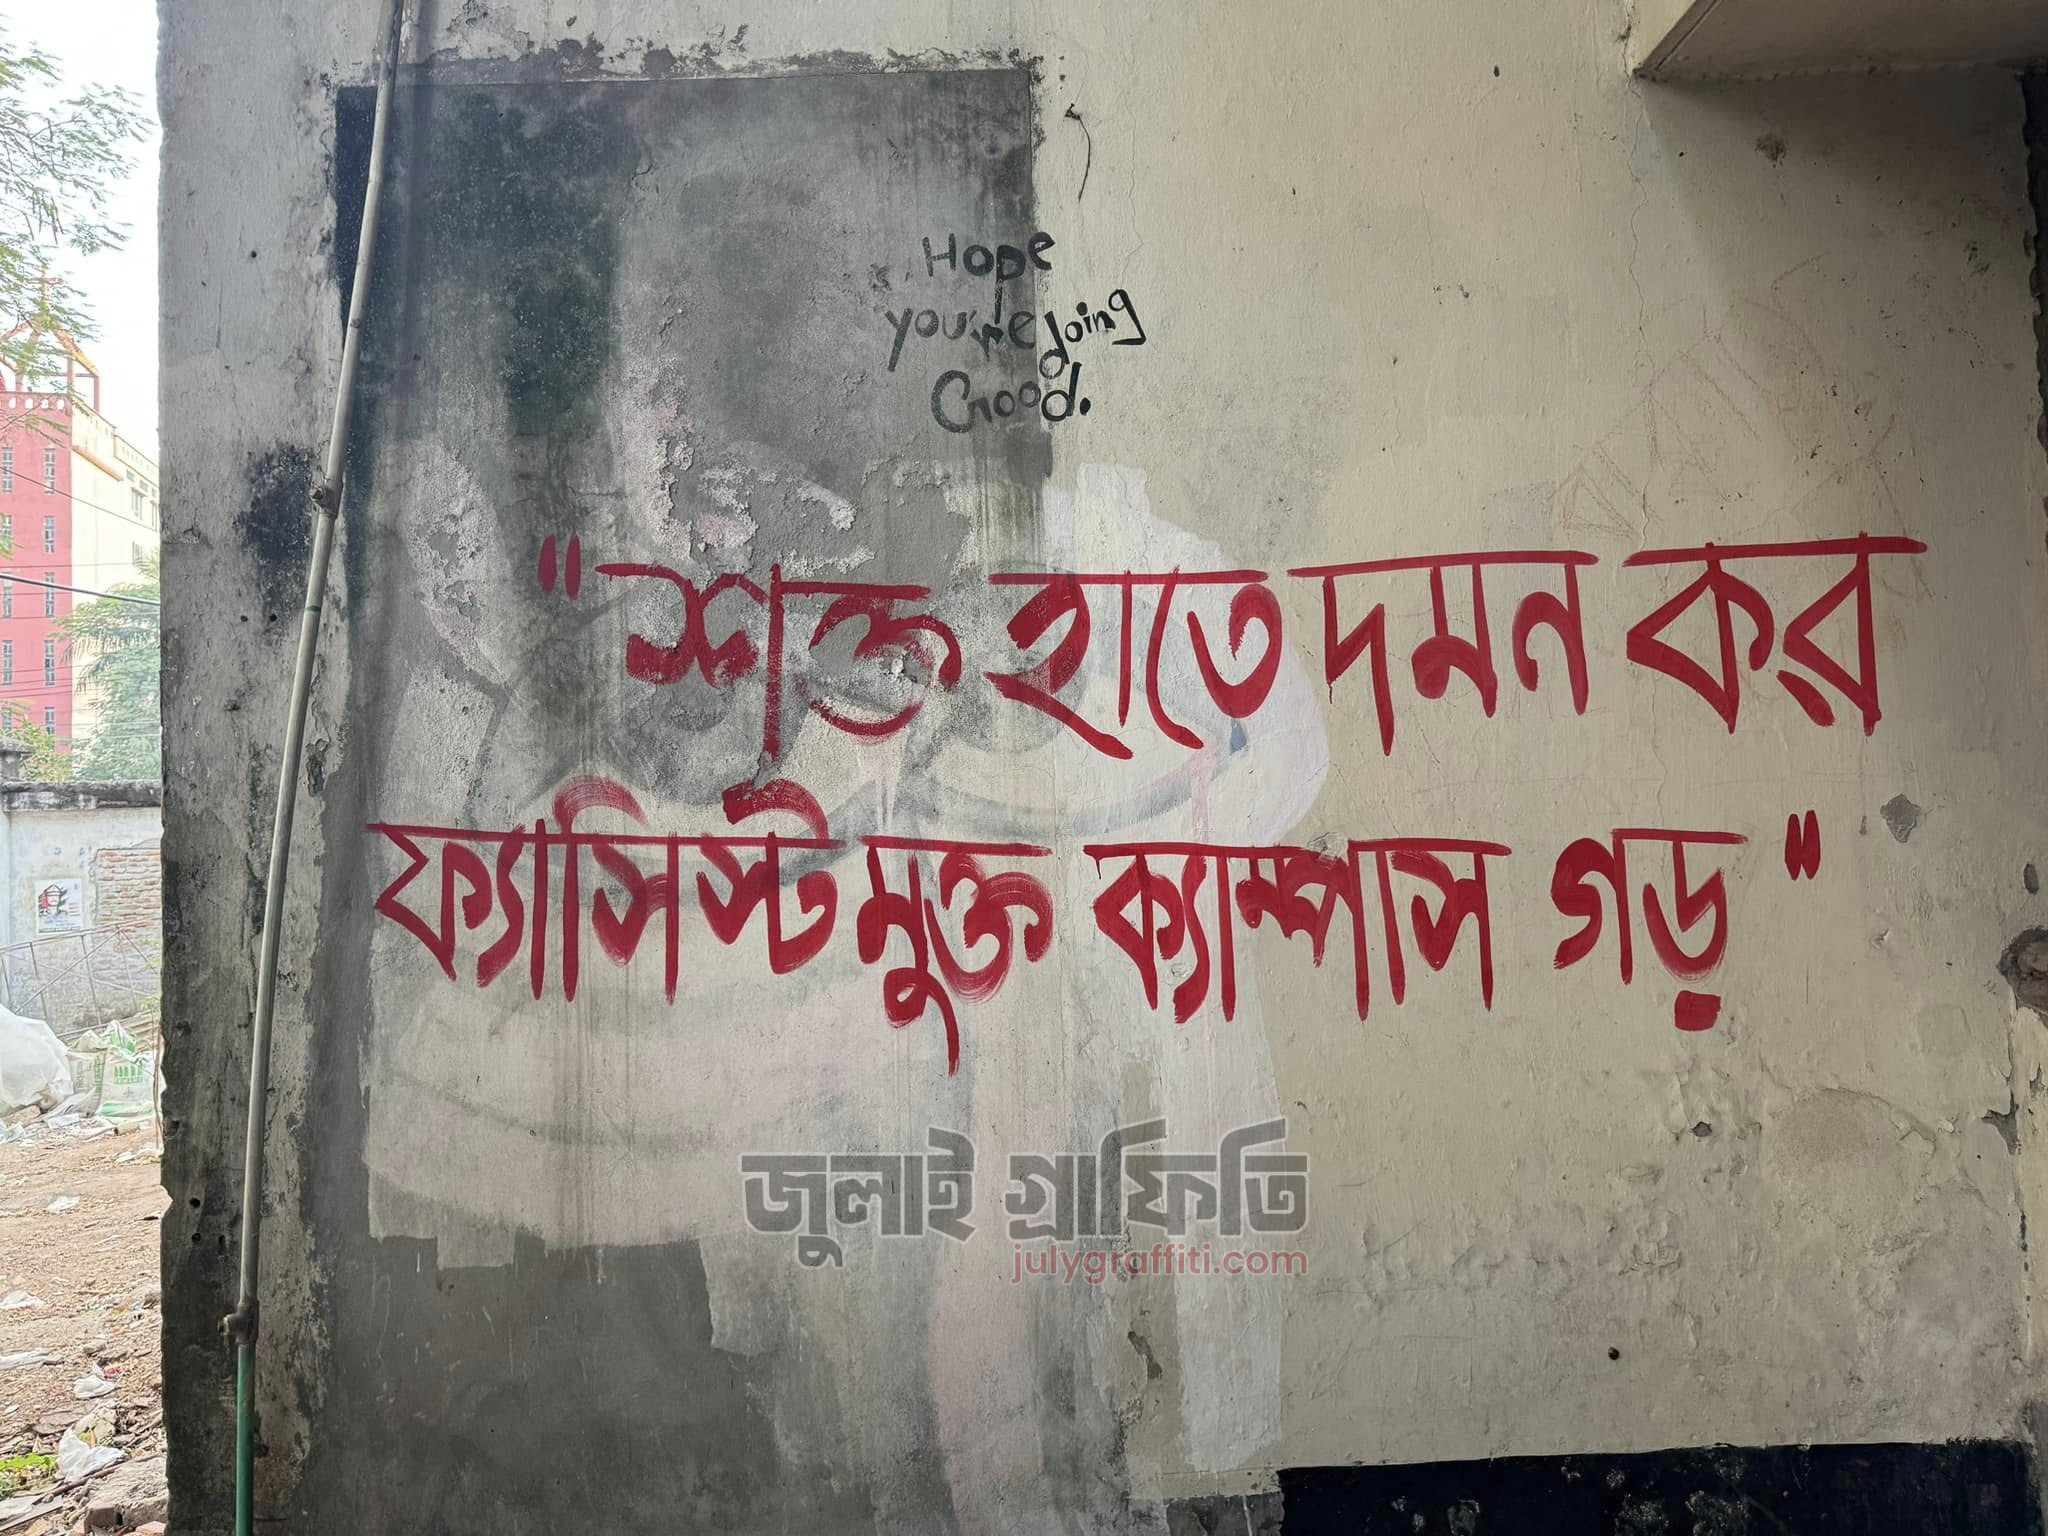 Hope
you're doing
Good.
"শক্ত হাতে দমন কর
ফ্যাসিস্ট মুক্ত ক্যাম্পাস গড়"
জুলাই গ্রাফিতি
julygraffiti.com